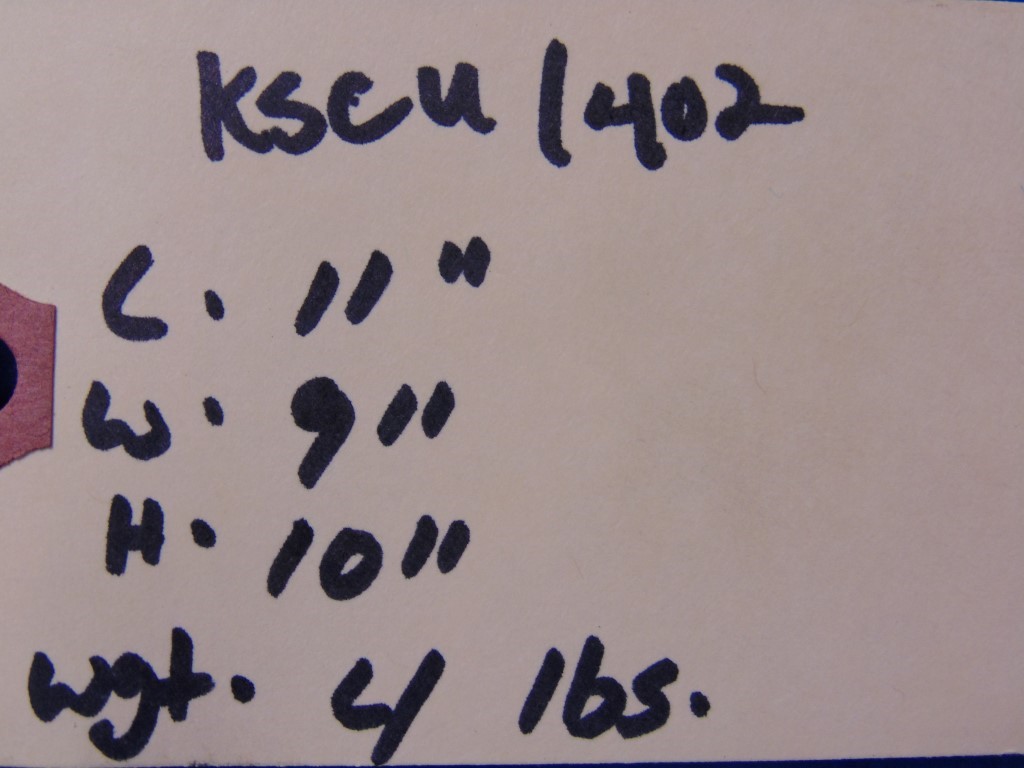 KSCU 1402
L. 11"
W. 9"
H. 10"
Wgt. 4 lbs.